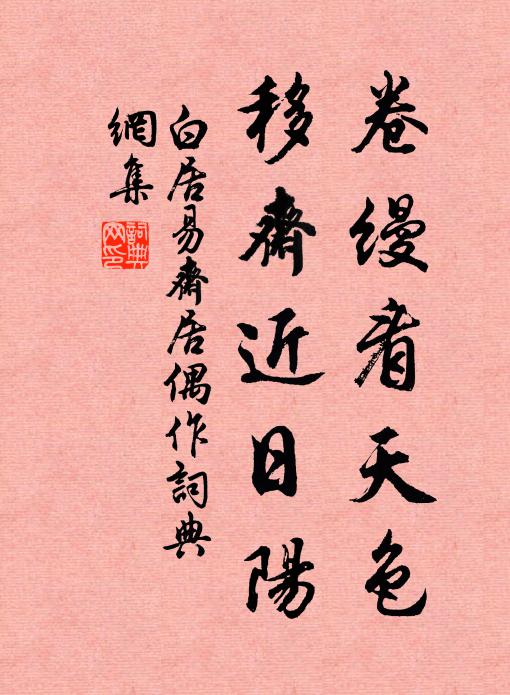 卷縵看天色
移齋近日陽
白居易齋居偶作詞典
網集
詞典
网印